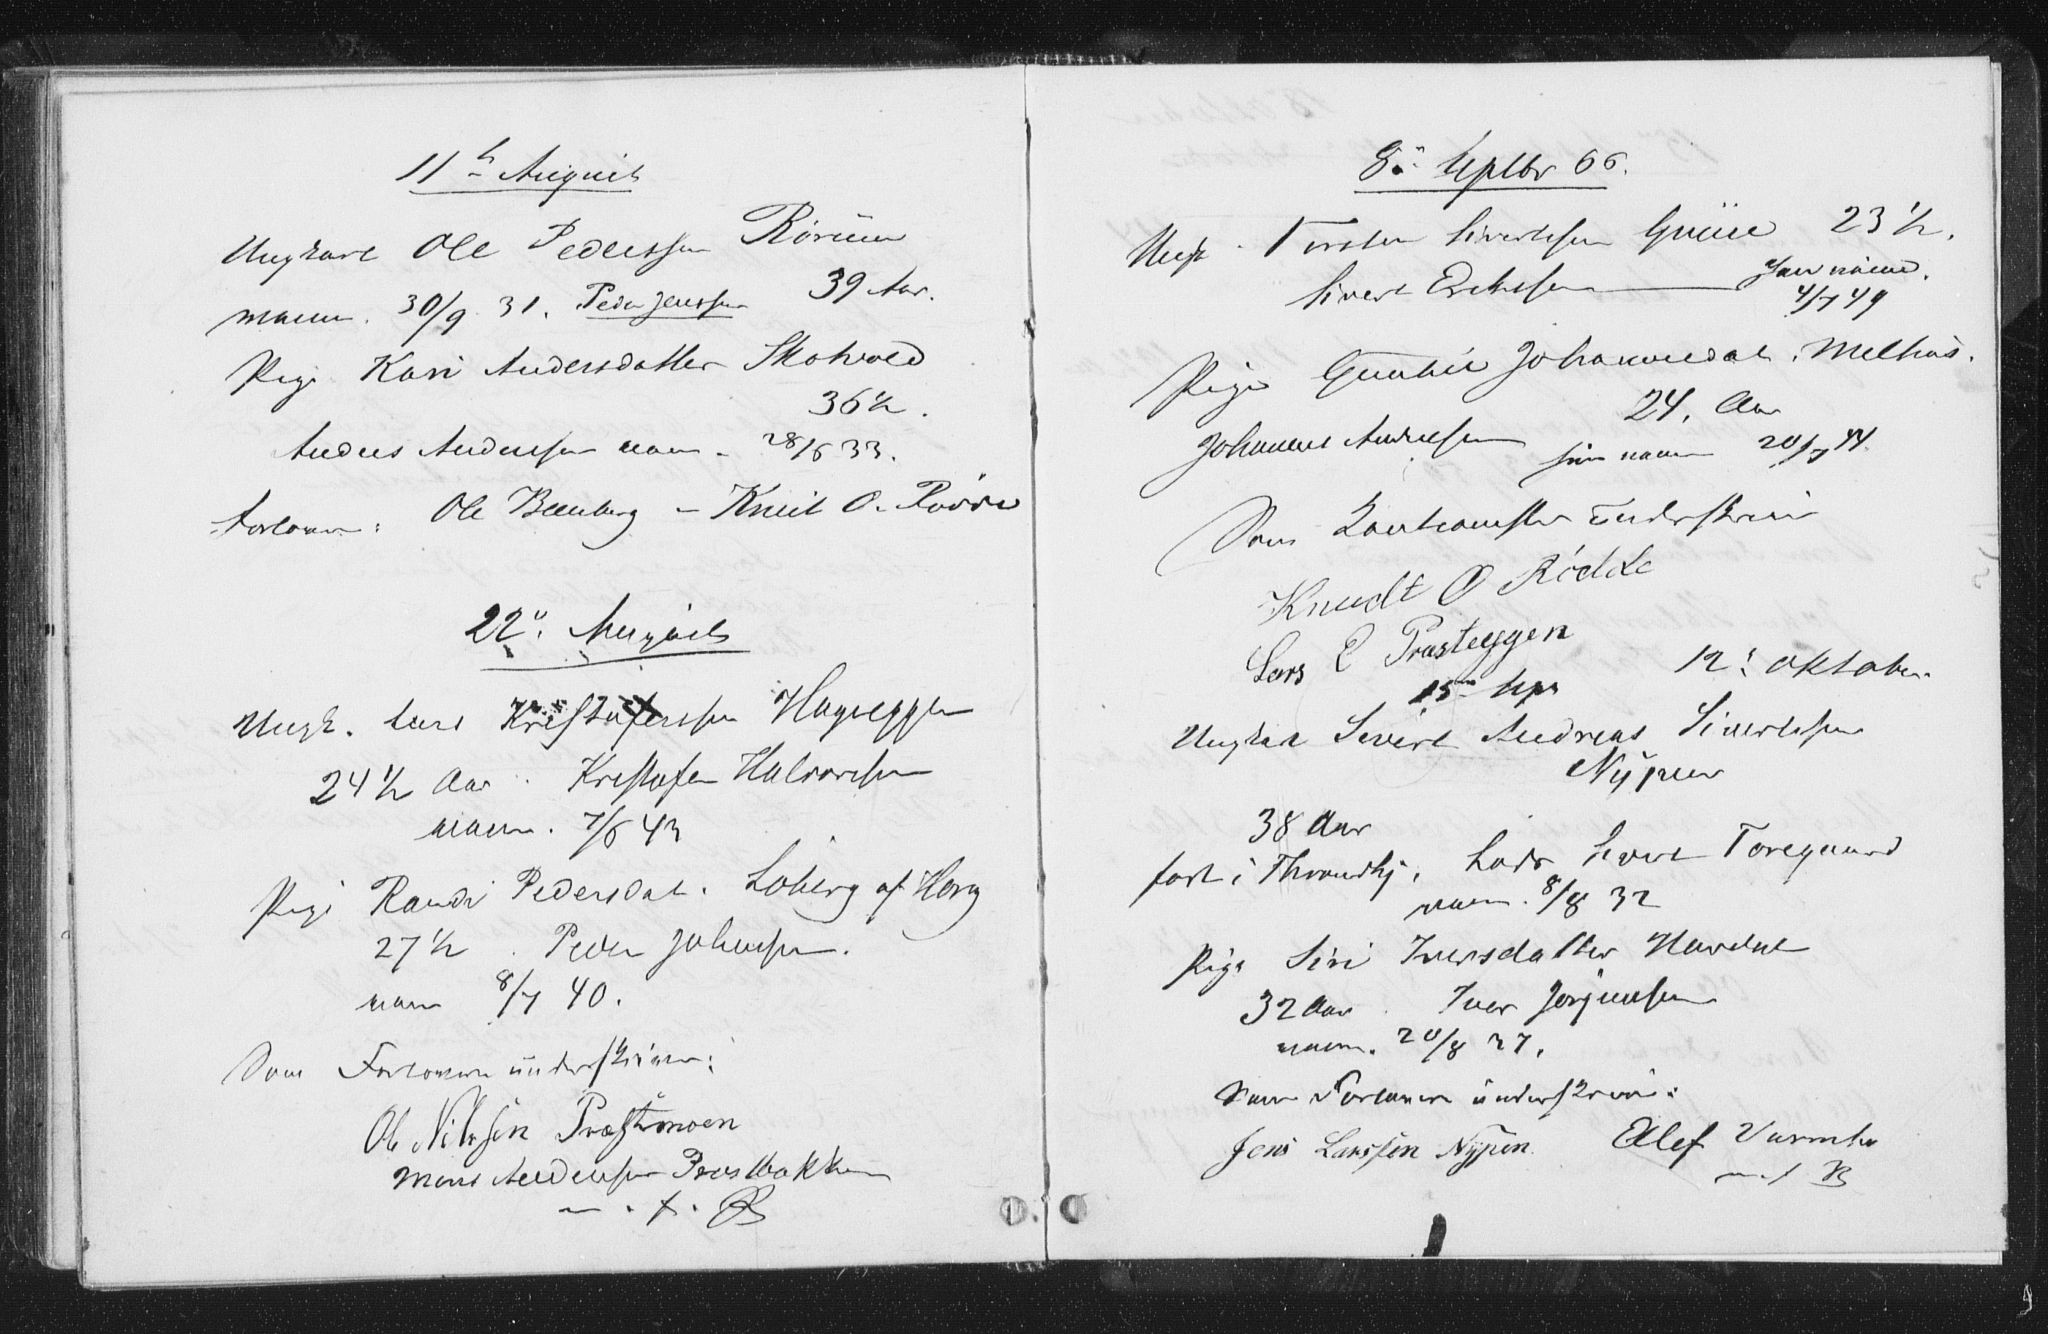 11te August
Ungkarl Ole Pederssen Rörum
39 Aar.
30/9 31. Peder Jenssen
Pige Kari Andersdatter Skotvold
36½.
Anders Anderssen 28/6 33.
Forlovere: Ole Beenberg – Knut O. Rødde
22. August
Ungk. Lars Kristofersen Hageeggen
24½ Aar. Kristofer Halvorsen
7/6 43
Pige Randi Pedersdat. Løberg af Horg
27½. Peder Johnsen.
8/7 40.
Som Forlovere underskriver:
Ole Nilssen Præstmoen
Mons Anderssen Præstbakken
m. f. P.
8. Septbr 66.
Ungk. Torsten Sivertsen 23½.
Sivert Ericksen
4/7 49
Pige Johannesdat. Melhus.
24. Aar
Johannes Andersen 20/7 44.
Som underskriver
Knudt O Rödde
Lars E Prasteggen
15 Sept 12. Oktober
Ungkar Sivert Andreas Sivertsen
Nypen
38 Aar
født i Throndhj. Sivert Toregaard
8/8 32
Pige Siri Iversdatter Havdal
32 Aar. Iver Jørgensen
20/8 37.
Som Forlovere underskriver:
Jens Larssen Nypen. Ellef Varmbo
m. f. P